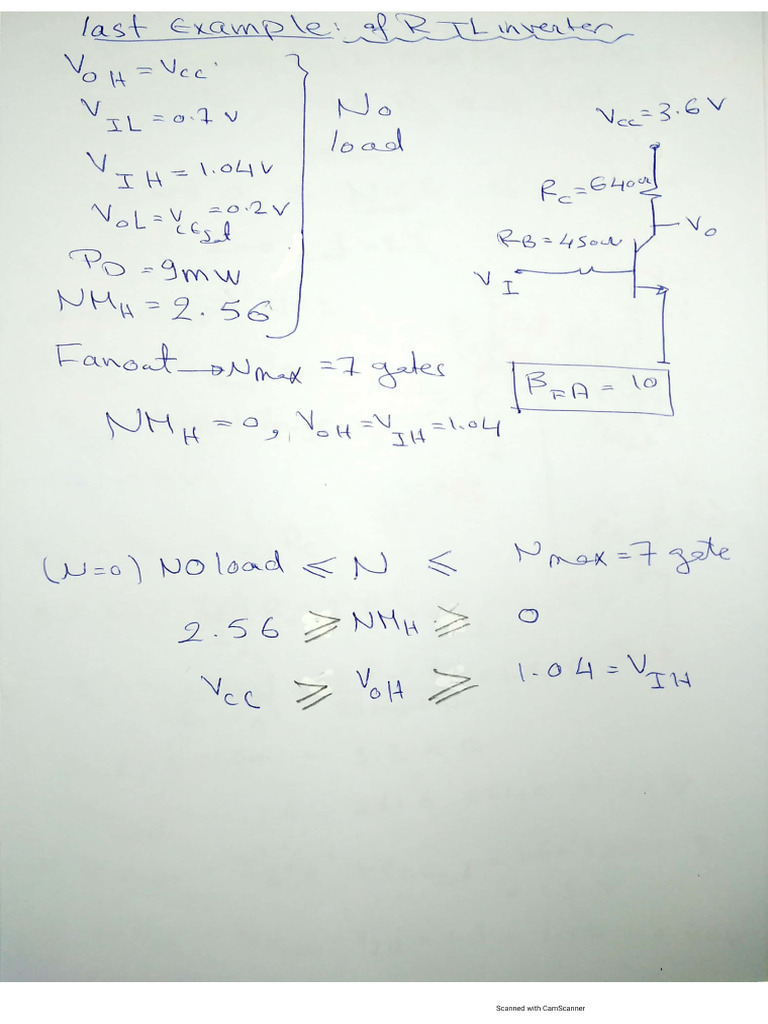 last Example: of RTL inverter
V_OH = Vcc
V_IL = 0.7 V
V_IH = 1.04 V
V_OL = V_CEsat = 0.2 V
P_D = 9mW
NM_H = 2.56
No
load
Vcc = 3.6 V
R_C = 640Ω
V_O
R_B = 450Ω
V_I
Fanout → N_max = 7 gates
B_FA = 10
NM_H = 0, V_OH = V_IH = 1.04
(N=0) NO load ≤ N ≤ N_max = 7 gate
2.56 ≥ NM_H ≥ 0
V_CC ≥ V_OH ≥ 1.04 = V_IH
Scanned with CamScanner